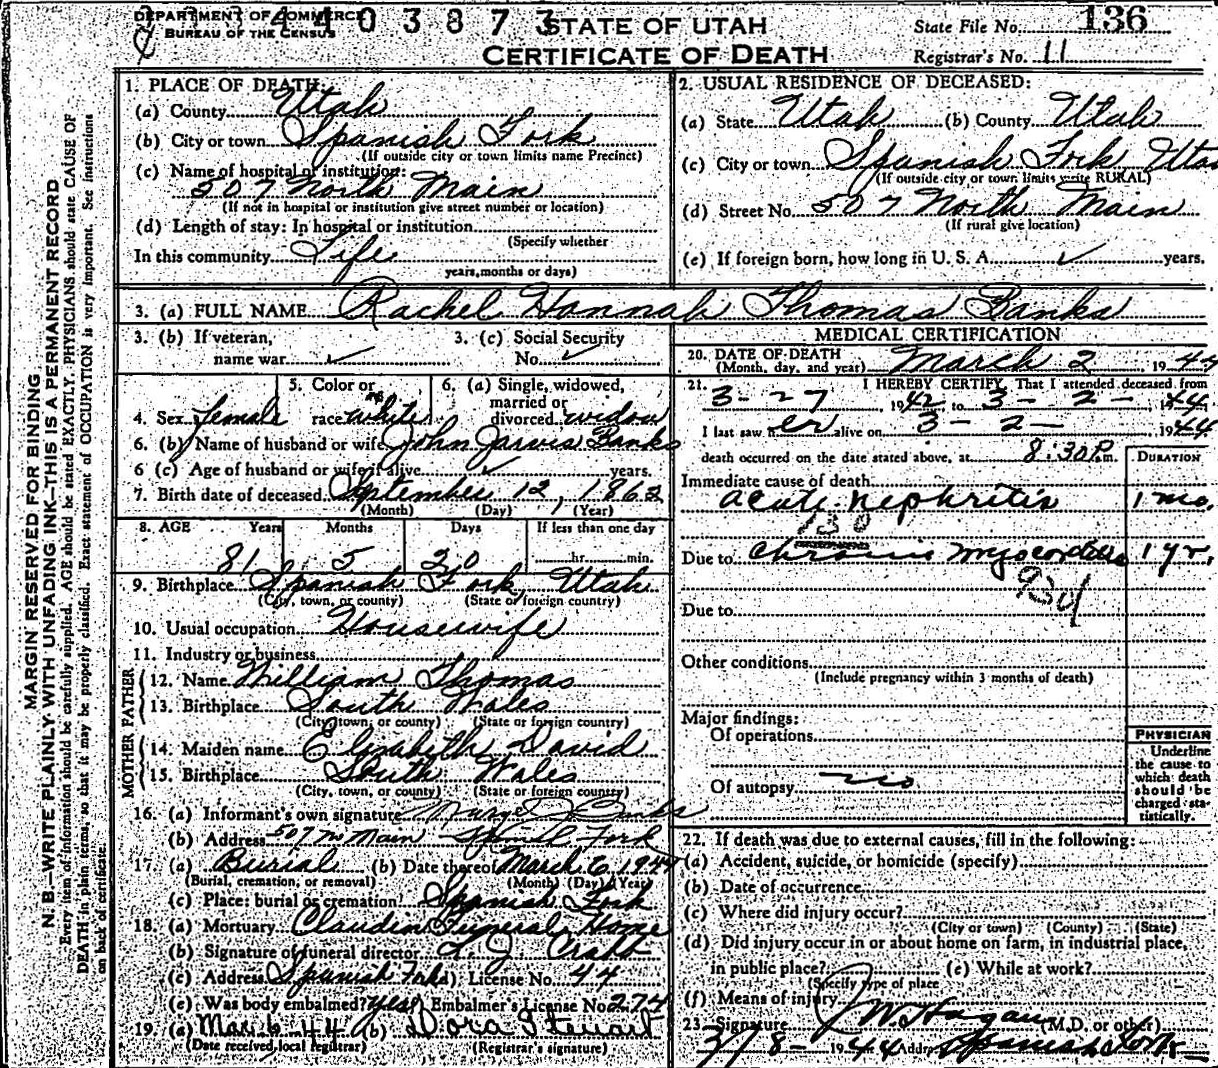 DEPARTMENT OF COMMERCE
BUREAU OF THE CENSUS
4403873
STATE OF UTAH
CERTIFICATE OF DEATH
State File No. 136
Registrar's No. 11
MARGIN RESERVED FOR BINDING
N. B.—WRITE PLAINLY WITH UNFADING INK—THIS IS A PERMANENT RECORD
Every item of information should be carefully supplied. AGE should be stated EXACTLY. PHYSICIANS should state CAUSE OF
DEATH in plain terms, so that it may be properly classified. Exact statement of OCCUPATION is very important. See instructions
on back of certificate.
1. PLACE OF DEATH:
(a) County Utah
(b) City or town Spanish Fork
(If outside city or town limits name Precinct)
(c) Name of hospital or institution:
507 North Main
(If not in hospital or institution give street number or location)
(d) Length of stay: In hospital or institution
(Specify whether
In this community Life
years, months or days)
2. USUAL RESIDENCE OF DECEASED:
(a) State Utah (b) County Utah
(c) City or town Spanish Fork Utah
(If outside city or town limits write RURAL)
(d) Street No. 507 North Main
(If rural give location)
(e) If foreign born, how long in U. S. A. ✓ years.
3. (a) FULL NAME Rachel Hannah Thomas Banks
3. (b) If veteran,
name war ✓
3. (c) Social Security
No. ✓
4. Sex female
5. Color or
race white
6. (a) Single, widowed,
married or
divorced widow
6. (b) Name of husband or wife John Jarvis Banks
6 (c) Age of husband or wife if alive ✓ years.
7. Birth date of deceased September 12, 1862
(Month) (Day) (Year)
8. AGE Years Months Days If less than one day
81 5 20 hr. min.
9. Birthplace Spanish Fork, Utah
(City, town, or county) (State or foreign country)
10. Usual occupation Housewife
11. Industry or business
FATHER
12. Name William Thomas
13. Birthplace South Wales
(City, town, or county) (State or foreign country)
MOTHER
14. Maiden name Elizabeth David
15. Birthplace South Wales
(City, town, or county) (State or foreign country)
16. (a) Informant's own signature Banks
(b) Address 507 No Main Spanish Fork
17. (a) Burial (b) Date thereof March 6, 1944
(Burial, cremation, or removal) (Month) (Day) (Year)
(c) Place: burial or cremation Spanish Fork
18. (a) Mortuary Claudin Funeral Home
(b) Signature of funeral director
(c) Address Spanish Fork License No. 44
(e) Was body embalmed? yes Embalmer's License No. 274
19. (a) Mar. 6 44 (b) Dora Stewart
(Date received local registrar) (Registrar's signature)
MEDICAL CERTIFICATION
20. DATE OF DEATH March 2 1944
(Month, day, and year)
21. I HEREBY CERTIFY, That I attended deceased from
3-27 1942 to 3-2- 1944
I last saw her alive on 3-2- 1944
death occurred on the date stated above, at 8:30 P.m.
DURATION
Immediate cause of death
acute nephritis 1 mo.
130
Due to chronic myocarditis 1 yr.
93d
Due to
Other conditions
(Include pregnancy within 3 months of death)
Major findings:
Of operations
Of autopsy no
PHYSICIAN
Underline
the cause to
which death
should be
charged sta-
tistically.
22. If death was due to external causes, fill in the following:
(a) Accident, suicide, or homicide (specify)
(b) Date of occurrence
(c) Where did injury occur?
(City or town) (County) (State)
(d) Did injury occur in or about home on farm, in industrial place,
in public place? (e) While at work?
(Specify type of place
(f) Means of injury
23. Signature J W. Hagan (M.D. or other)
3/8- 1944 Addr. Spanish Fork